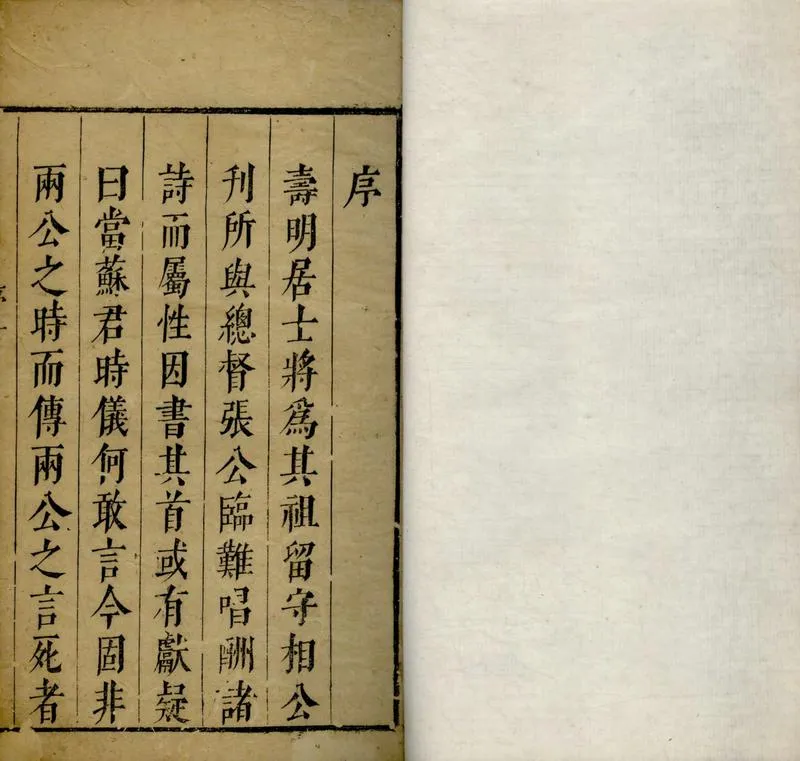 序
壽明居士將爲其祖留守相公
刋所與總督張公臨難唱酬諸
詩而屬性因書其首或有獻疑
曰當蘇君時儀何敢言今固非
兩公之時而傳兩公之言死者